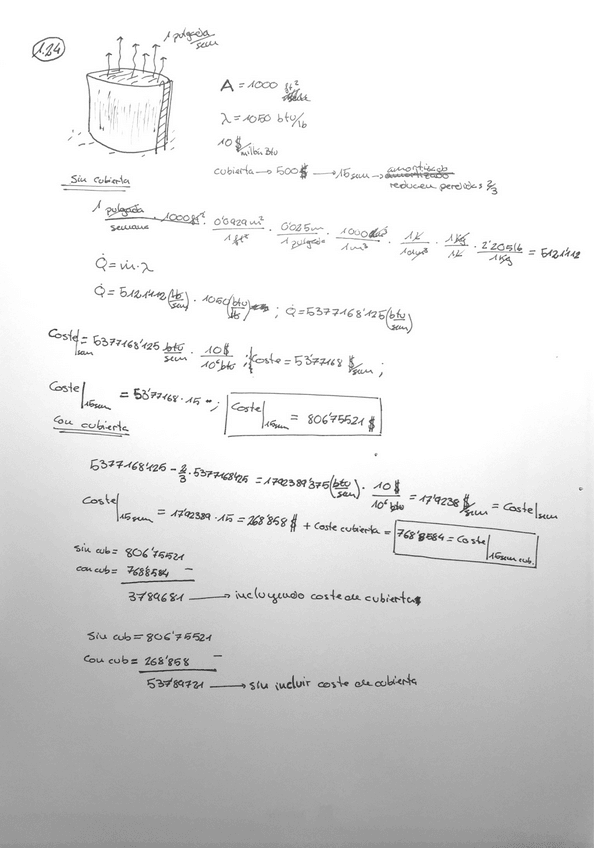 1.24
1 pulgada/sem
A = 1000 ft²
λ = 1050 btu/lb
10 $/millón Btu
cubierta → 500 $ → 15 sem → reducen perdidas 2/3
Sin cubierta
1 pulgada/semana · 1000 ft² · 0'0929 m²/1 ft² · 0'025 m/1 pulgada · 1000 dm³/1 m³ · 1 l/1 dm³ · 1 kg/1 l · 2'205 lb/1 kg = 5121'112
Q̇ = ṁ·λ
Q̇ = 5121'1112 (lb/sem) · 1050 (btu/lb) ; Q̇ = 5377168'125 (btu/sem)
Coste|sem = 5377168'125 btu/sem · 10 $/10⁶ btu ; Coste = 53'77168 $/sem ;
Coste|15 sem = 53'77168 · 15 ; Coste|15 sem = 806'75521 $
Con cubierta
5377168'125 - 2/3 · 5377168'125 = 1792389'375 (btu/sem) · 10 $/10⁶ btu = 17'9238 $/sem = Coste|sem
Coste|15 sem = 17'92389 · 15 = 268'858 $ + Coste cubierta = 768'8584 = Coste|15 sem cub.
sin cub = 806'75521
con cub = 768'8584 −
37'89681 → incluyendo coste de cubierta
Sin cub = 806'75521
Con cub = 268'858 −
537'89721 → sin incluir coste de cubierta